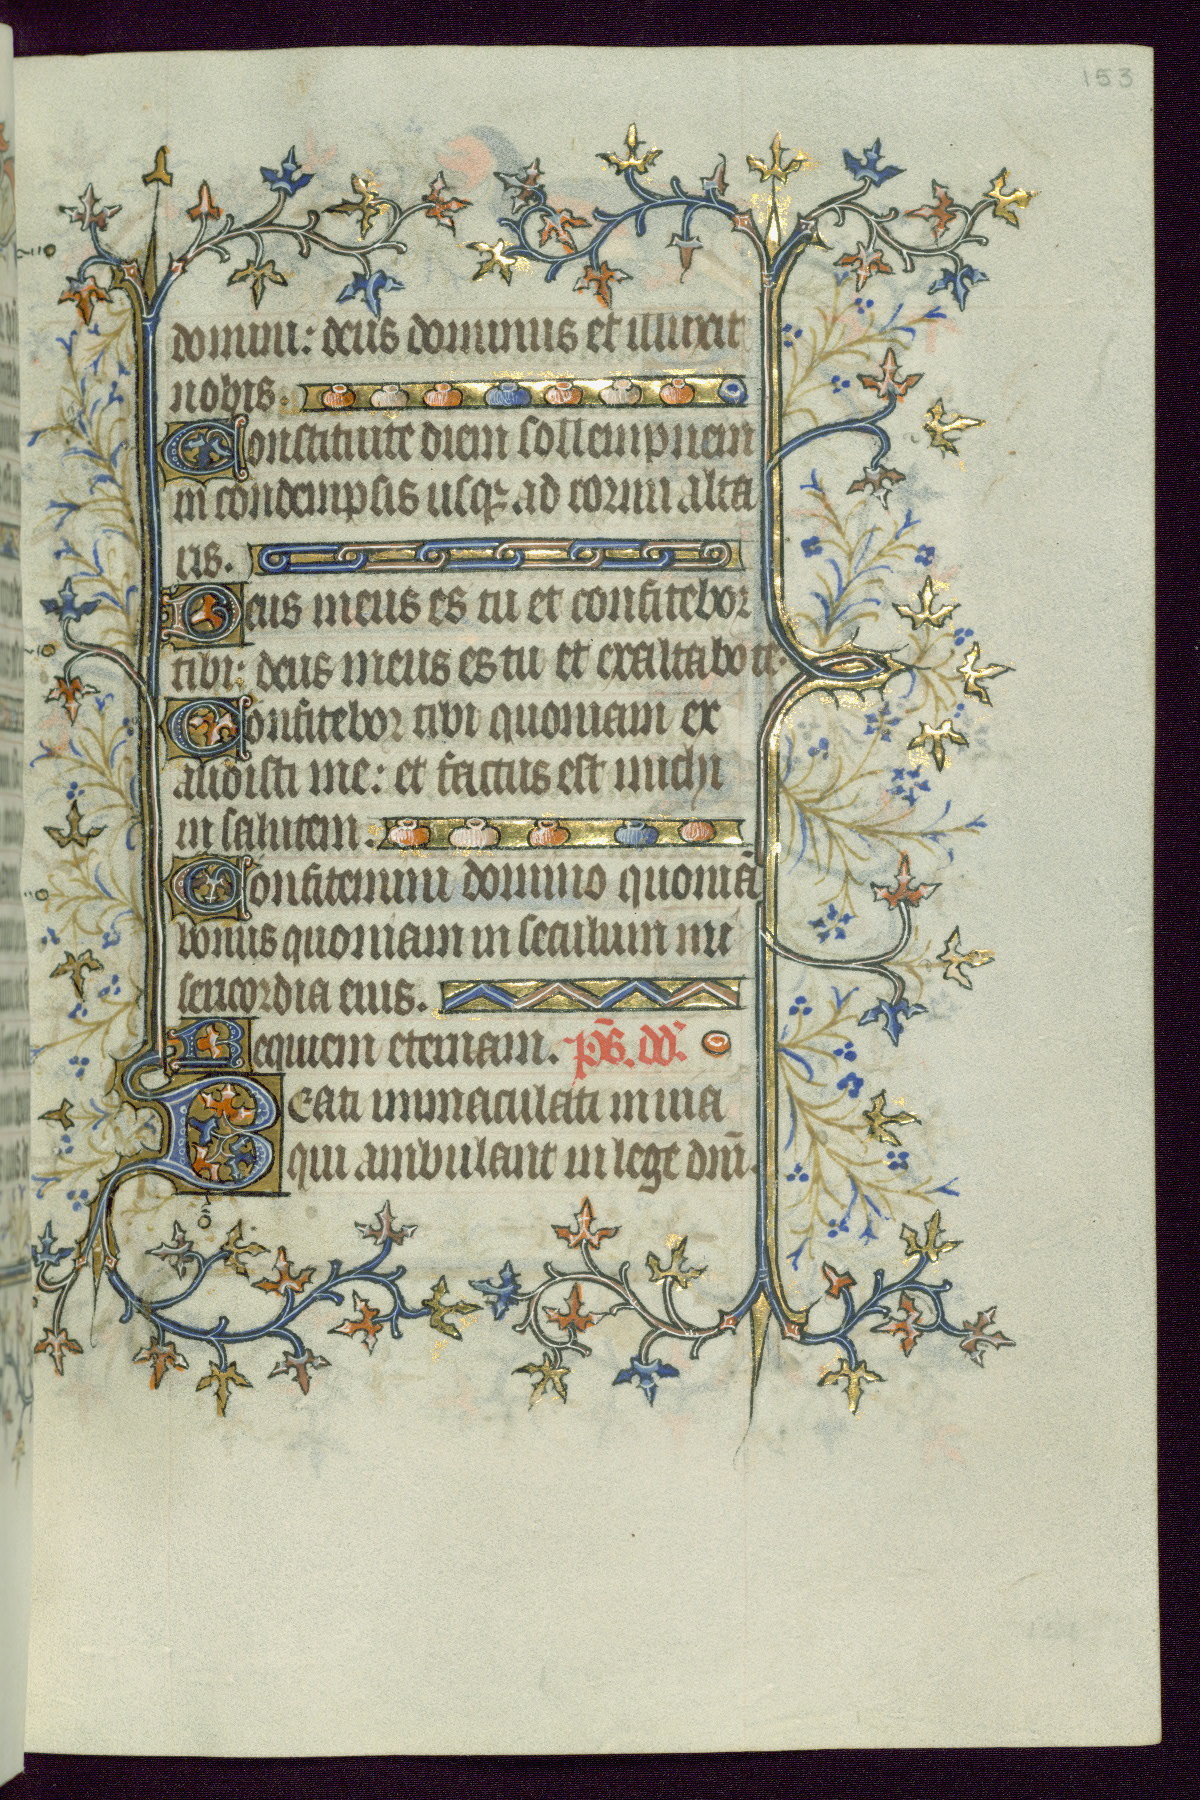 153
domini: deus dominus et illuxit
nobis.
Constituite diem sollempnem
in condempsis usqꝫ ad cornu alta
ris.
Deus meus es tu et confitebor
tibi: deus meus es tu et exaltabo te.
Confitebor tibi quoniam ex
audisti me: et factus est michi
in salutem.
Confitemini domino quoniā
bonus quoniam in seculum mi
sericordia eius.
Requiem eternam. ps̄. dd̄.
Beati immaculati in uia
qui ambulant in lege dn̄i.